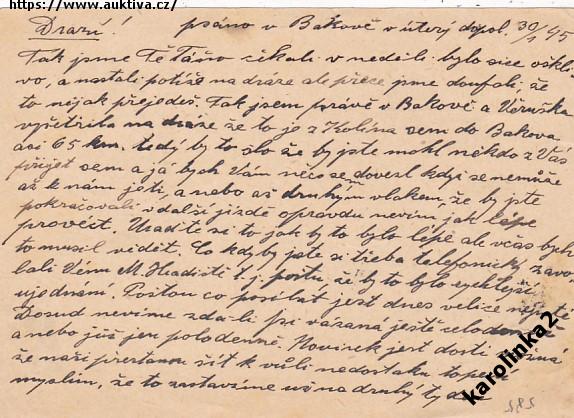 https://www.auktiva.cz/
Drazí! psáno v Bakově v úterý dopol. 30/1 45
Tak jsme Tě Táňo čekali v neděli bylo sice oškli-
vo, a nastali potíže na dráze ale přece jsme doufali, že
to nějak přejedeš. Tak jsem právě v Bakově a Věruška
vyšetřila na dráze že to je z Kolína sem do Bakova
asi 65 km. tedy by to šlo že by jste mohl někdo z Vás
přijet sem a já bych Vám něco sem dovezl když se nemůže
až k nám jeti, a nebo až druhým vlakem, že by jste
pokračovali v další jízdě opravdu nevím jak lépe
provést. Uradíte si to jak by to bylo lépe ale včas bych
to musil vědět. Co kdyby jste si třeba telefonicky zavo
lali Věru M. Hradiště t. j. poštu, že by to bylo rychlejší
ujednání. Poštou co posílat jest dnes velice nejisté
Dosud nevíme zda-li psí vázana ještě celodenně
a nebo již jen polodenně. Novinek jest dosti
že naši přestanou šít k vůli nedostatku topení
myslím, že to zastavíme už na druhý týden
karolinka2